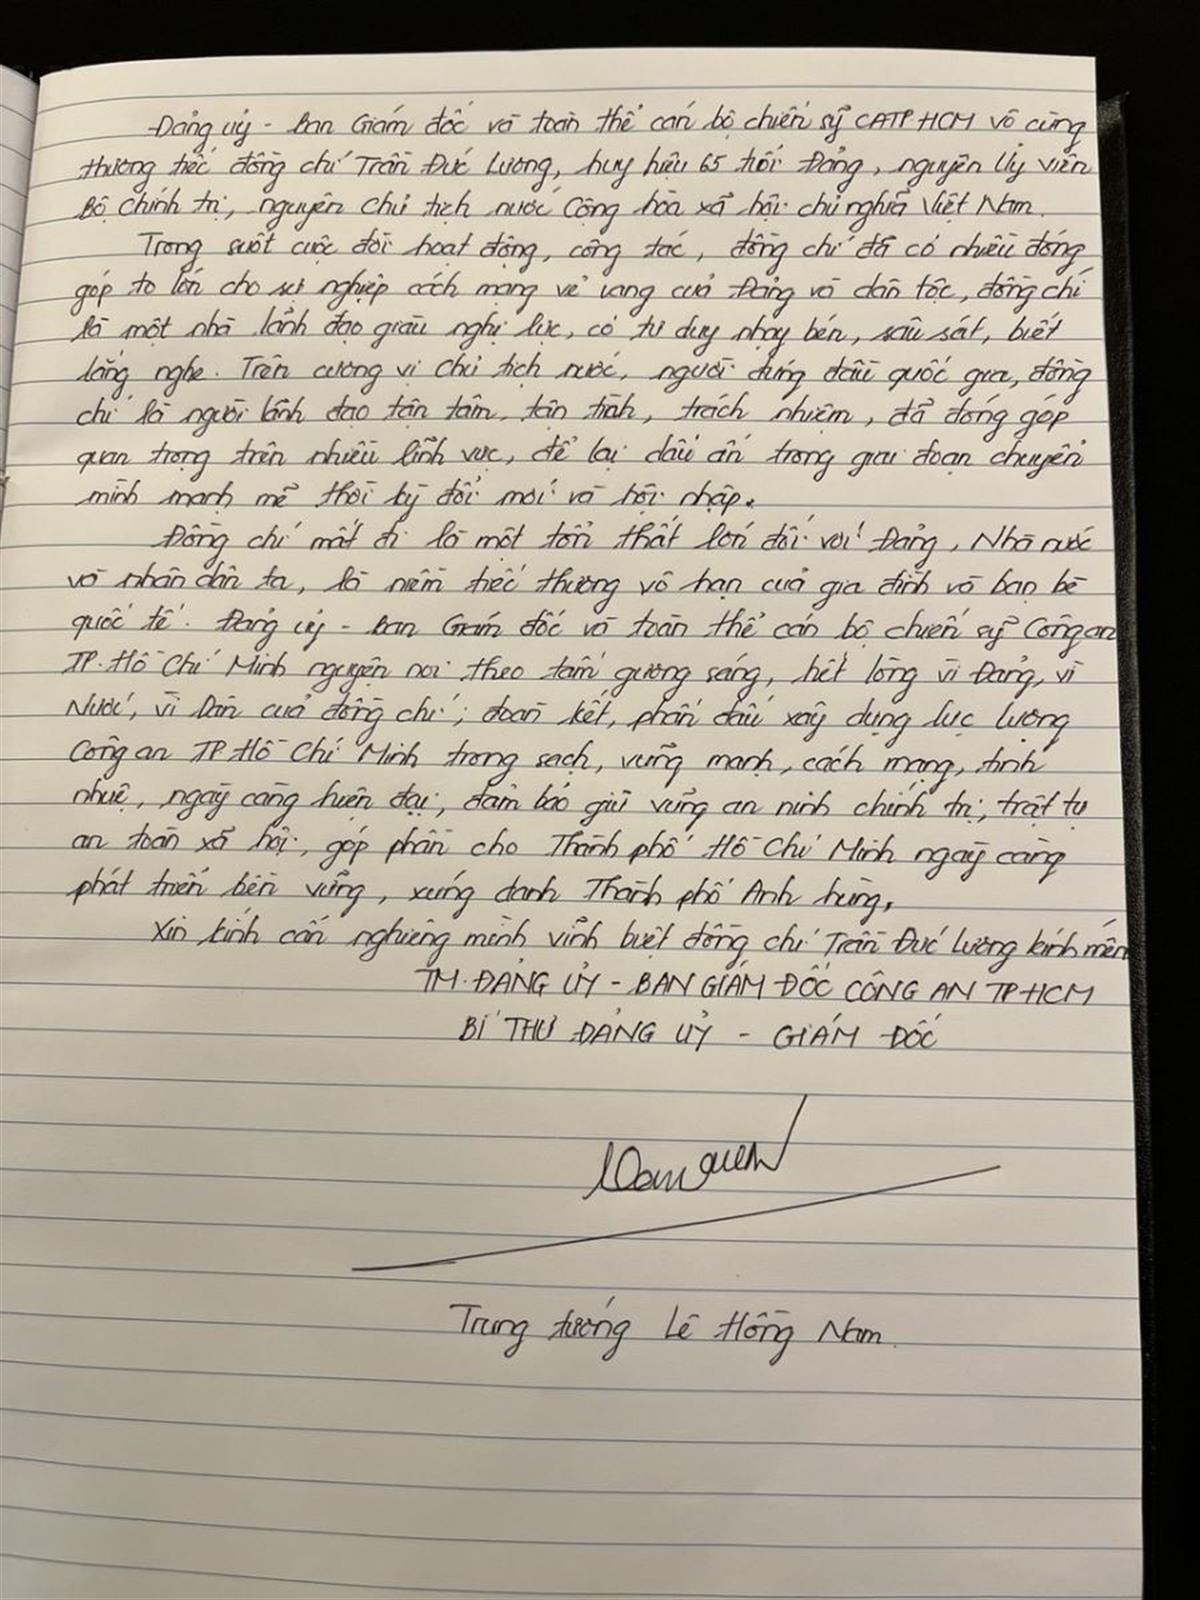 Đảng uỷ - Ban Giám đốc và toàn thể cán bộ chiến sỹ CATP.HCM vô cùng
thương tiếc đồng chí Trần Đức Lương, huy hiệu 65 tuổi Đảng, nguyên Uỷ viên
Bộ Chính trị, nguyên Chủ tịch nước Cộng hòa xã hội chủ nghĩa Việt Nam.
Trong suốt cuộc đời hoạt động, công tác, đồng chí đã có nhiều đóng
góp to lớn cho sự nghiệp cách mạng vẻ vang của Đảng và dân tộc, đồng chí
là một nhà lãnh đạo giàu nghị lực, có tư duy nhạy bén, sâu sát, biết
lắng nghe. Trên cương vị Chủ tịch nước, người đứng đầu quốc gia, đồng
chí là người lãnh đạo tận tâm, tận tình, trách nhiệm, đã đóng góp
quan trọng trên nhiều lĩnh vực, để lại dấu ấn trong giai đoạn chuyển
mình mạnh mẽ thời kỳ đổi mới và hội nhập.
Đồng chí mất đi là một tổn thất lớn đối với Đảng, Nhà nước
và nhân dân ta, là niềm tiếc thương vô hạn của gia đình và bạn bè
quốc tế. Đảng uỷ - Ban Giám đốc và toàn thể cán bộ chiến sỹ Công an
TP. Hồ Chí Minh nguyện noi theo tấm gương sáng, hết lòng vì Đảng, vì
Nước, vì Dân của đồng chí; đoàn kết, phấn đấu xây dựng lực lượng
Công an TP. Hồ Chí Minh trong sạch, vững mạnh, cách mạng, tinh
nhuệ, ngày càng hiện đại; đảm bảo giữ vững an ninh chính trị, trật tự
an toàn xã hội, góp phần cho Thành phố Hồ Chí Minh ngày càng
phát triển bền vững, xứng danh Thành phố Anh hùng.
Xin kính cẩn nghiêng mình vĩnh biệt đồng chí Trần Đức Lương kính mến
TM. ĐẢNG UỶ - BAN GIÁM ĐỐC CÔNG AN TP.HCM
BÍ THƯ ĐẢNG UỶ - GIÁM ĐỐC
Trung tướng Lê Hồng Nam.